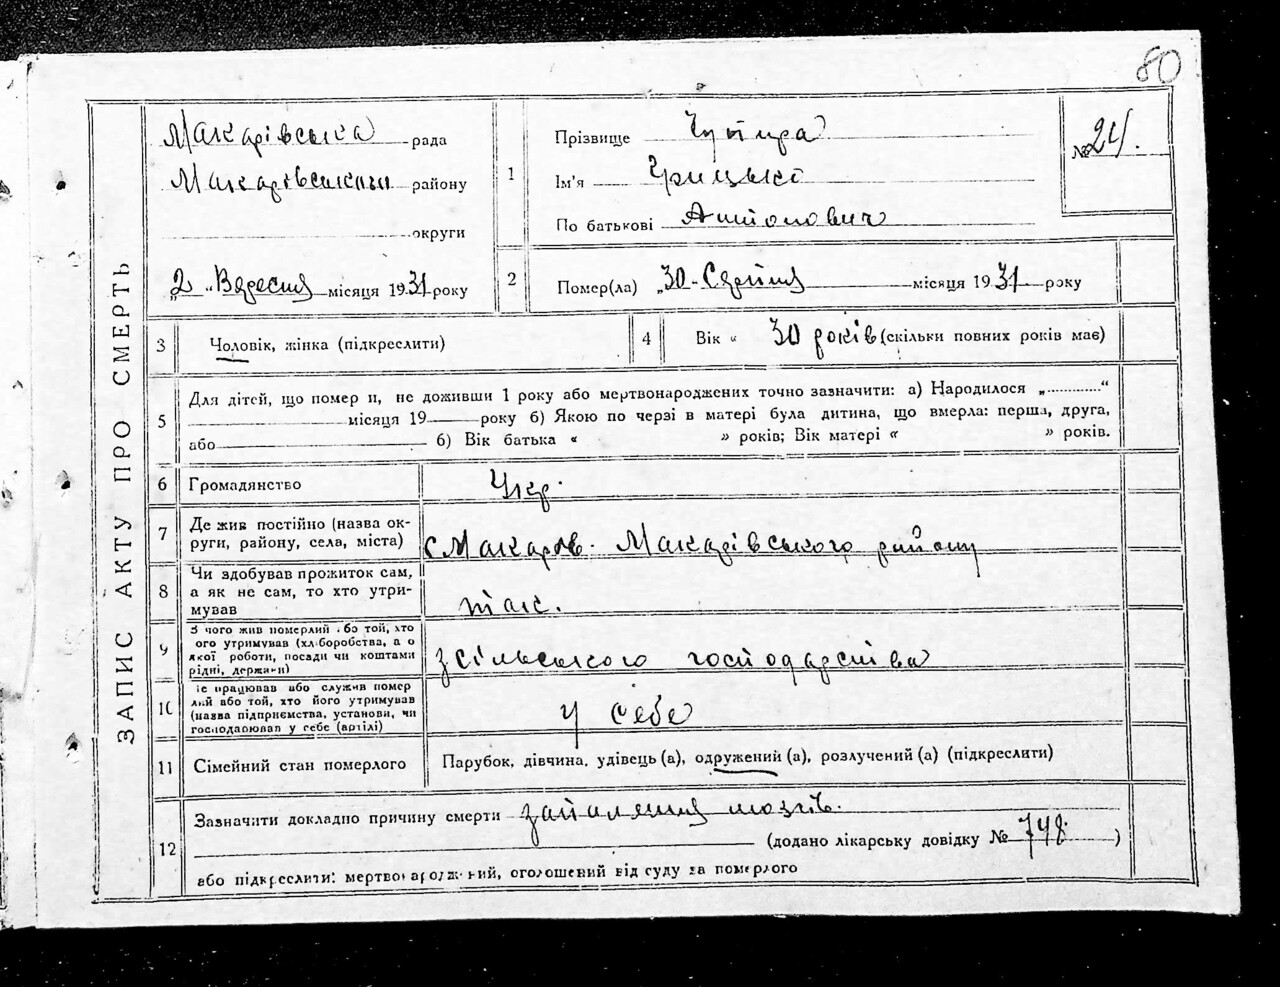 80
ЗАПИС АКТУ ПРО СМЕРТЬ
Макарівська рада
Макарівський району
округи
„2„ Вересня місяця 1931 року
1
Прізвище Чупира
Ім'я Грицько
По батькові Антонович
№ 24.
2
Помер(ла) „30 Серпня місяця 1931 року
3
Чоловік, жінка (підкреслити)
4
Вік „ 30 років (скільки повних років має)
5
Для дітей, що помер и, не доживши 1 року або мертвонароджених точно зазначити: а) Народилося „............“
місяця 19 року б) Якою по черзі в матері була дитина, що вмерла: перша, друга,
або б) Вік батька « » років; Вік матері « » років.
6
Громадянство
Укр.
7
Де жив постійно (назва ок-
руги, району, села, міста)
с Макарів. Макарівського району
8
Чи здобував прожиток сам,
а як не сам, то хто утри-
мував
так.
9
З чого жив померлий або той, хто
ого утримував (хліборобства, а о
якої роботи, посади чи коштами
рідні, держави)
з сільського господарства
10
е працював або служив помер
лий або той, хто його утримував
(назва підприємства, установи, чи
господарював у себе (артілі)
у себе
11
Сімейний стан померлого
Парубок, дівчина, удівець (а), одружений (а), розлучений (а) (підкреслити)
12
Зазначити докладно причину смерти запалення мозгів.
(додано лікарську довідку № 748 )
або підкреслити: мертвонароджений, оголошений від суду за померлого